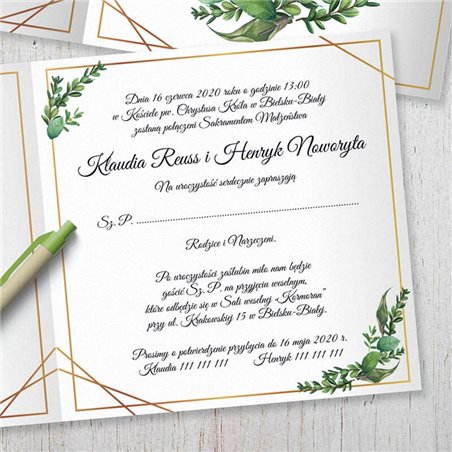 Dnia 16 czerwca 2020 roku o godzinie 13:00
w Kościele pw. Chrystusa Króla w Bielsku-Białej
zostaną połączeni Sakramentem Małżeństwa
Klaudia Reuss i Henryk Noworyta
Na uroczystość serdecznie zapraszają
Sz. P. ........................................................
Rodzice i Narzeczeni.
Po uroczystości zaślubin miło nam będzie
gościć Sz. P. na przyjęciu weselnym,
które odbędzie się w Sali weselnej „Kormoran”
przy ul. Krakowskiej 15 w Bielsku-Białej.
Prosimy o potwierdzenie przybycia do 16 maja 2020 r.
Klaudia 111 111 111 Henryk 111 111 111